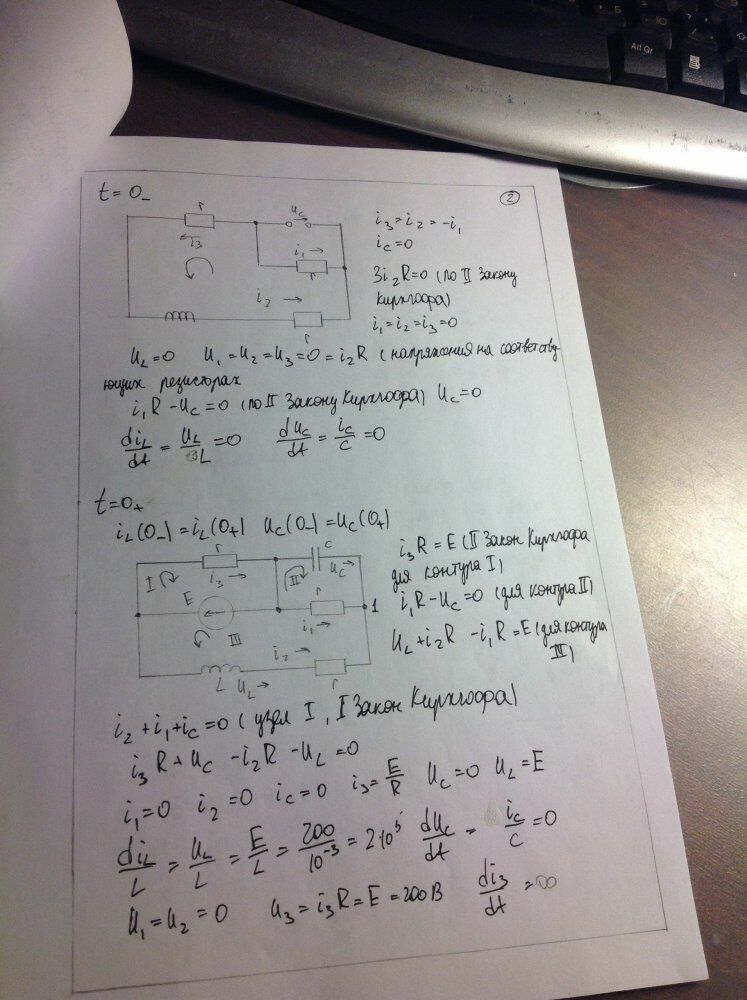 Alt Gr
②
t=0₋
r
u_c
i₃
i₁
r
i₂
r
i₃=i₂=-i₁
i_c=0
3i₂R=0 (по II Закону
Кирхгофа)
i₁=i₂=i₃=0
u_L=0 u₁=u₂=u₃=0=i₂R (напряжения на соответству-
ющих резисторах
i₁R-u_c=0 (по II Закону Кирхгофа) u_c=0
di_L/dt = u_L/L =0 du_c/dt = i_c/c =0
t=0₊
i_L(0₋)=i_L(0₊) u_c(0₋)=u_c(0₊)
r
c
I
i₃
II
u_c
E
r
1
III
i₁
i₂
L u_L
r
i₃R=E (II Закон Кирхгофа
для контура I)
i₁R-u_c=0 (для контура II)
u_L+i₂R -i₁R=E (для контура
III)
i₂+i₁+i_c=0 (узел I, I Закон Кирхгофа)
i₃R+u_c-i₂R-u_L=0
i₁=0 i₂=0 i_c=0 i₃=E/R u_c=0 u_L=E
di_L/L = u_L/L = E/L = 200/10⁻³ =2·10⁵ du_c/dt = i_c/c =0
u₁=u₂=0 u₃=i₃R=E=200В di₃/dt =∞